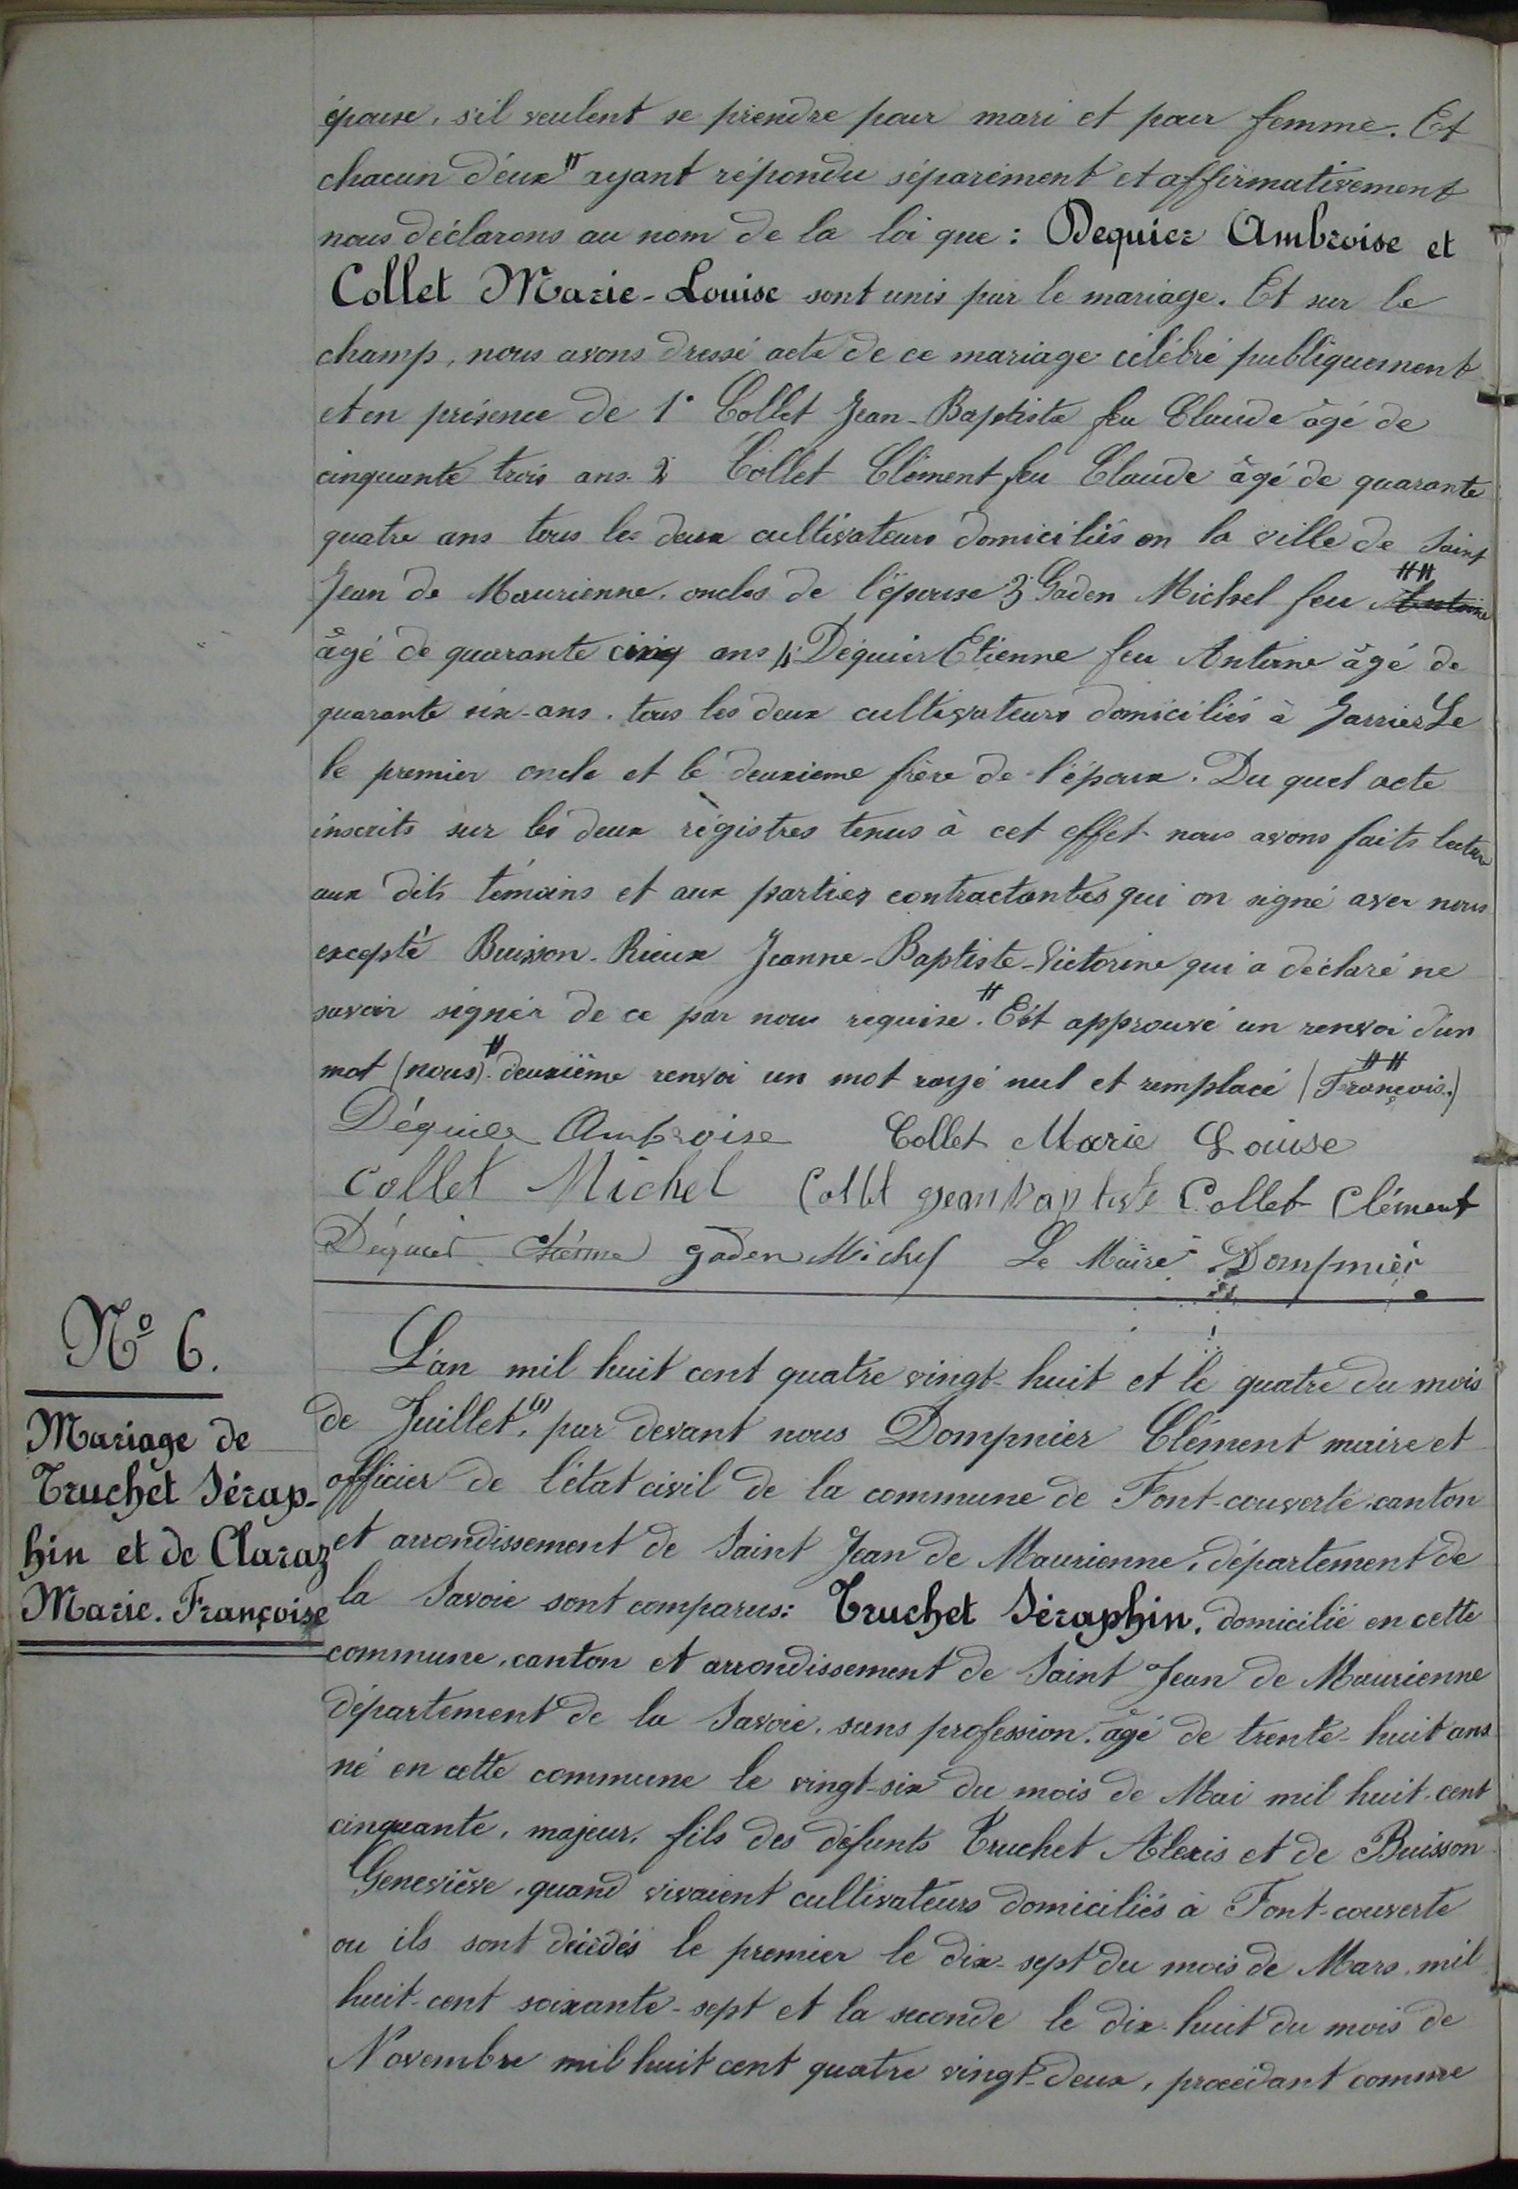 épouse, s'il veulent se prendre pour mari et pour femme. Et
chacun d'eux # ayant répondu séparément et affirmativement
nous déclarons au nom de la loi que : Dequier Ambroise et
Collet Marie-Louise sont unis par le mariage. Et sur le
champ, nous avons dressé acte de ce mariage célébré publiquement
et en présence de 1° Collet Jean-Baptiste feu Claude âgé de
cinquante trois ans. 2 Collet Clément feu Claude âgé de quarante
quatre ans tous les deux cultivateurs domiciliés en la ville de Saint
Jean de Maurienne. oncles de l'épouse 3° Gaden Michel feu Antoine ##
âgé de quarante cinq ans 4° Déquier Etienne feu Antoine âgé de
quarante six-ans. tous les deux cultivateurs domiciliés à Jarrier Le
le premier oncle et le deuxieme frère de l'époux. Du quel acte
inscrits sur les deux régistres tenus à cet effet nous avons faits lecture
aux dits témoins et aux parties contractantes qui on signé avec nous
excepté Buisson-Rieux Jeanne-Baptiste-Victorine qui a déclaré ne
savoir signér de ce par nous requise. # Est approuvé un renvoi d'un
mot (nous) # deuxiême renvoi un mot rayé nul et remplacé (## François.)
Déquier Ambroise Collet Marie Louise
Collet Michel Collet Jean Baptiste Collet Clément
Déquier Etienne Gaden Michel Le Maire Dompnier
N° 6.
Mariage de
Truchet Sérap-
hin et de Claraz
Marie. Françoise
L'an mil huit cent quatre vingt-huit et le quatre du mois
de Juillet, (1) par devant nous Dompnier Clément maire et
officier de l'état civil de la commune de Font-couverte, canton
et arrondissement de Saint Jean de Maurienne, département de
la Savoie sont comparus: Truchet Séraphin, domicilié en cette
commune, canton et arrondissement de Saint Jean de Maurienne
département de la Savoie, sans profession, âgé de trente-huit ans
né en cette commune le vingt-six du mois de Mai mil huit-cent
cinquante, majeur, fils des défunts Truchet Alexis et de Buisson
Geneviève, quand vivaient cultivateurs domiciliés à Font-couverte
ou ils sont décédés le premier le dix-sept du mois de Mars, mil
huit-cent soixante-sept et la seconde le dix-huit du mois de
Novembre mil huit cent quatre vingt-deux, procédant comme